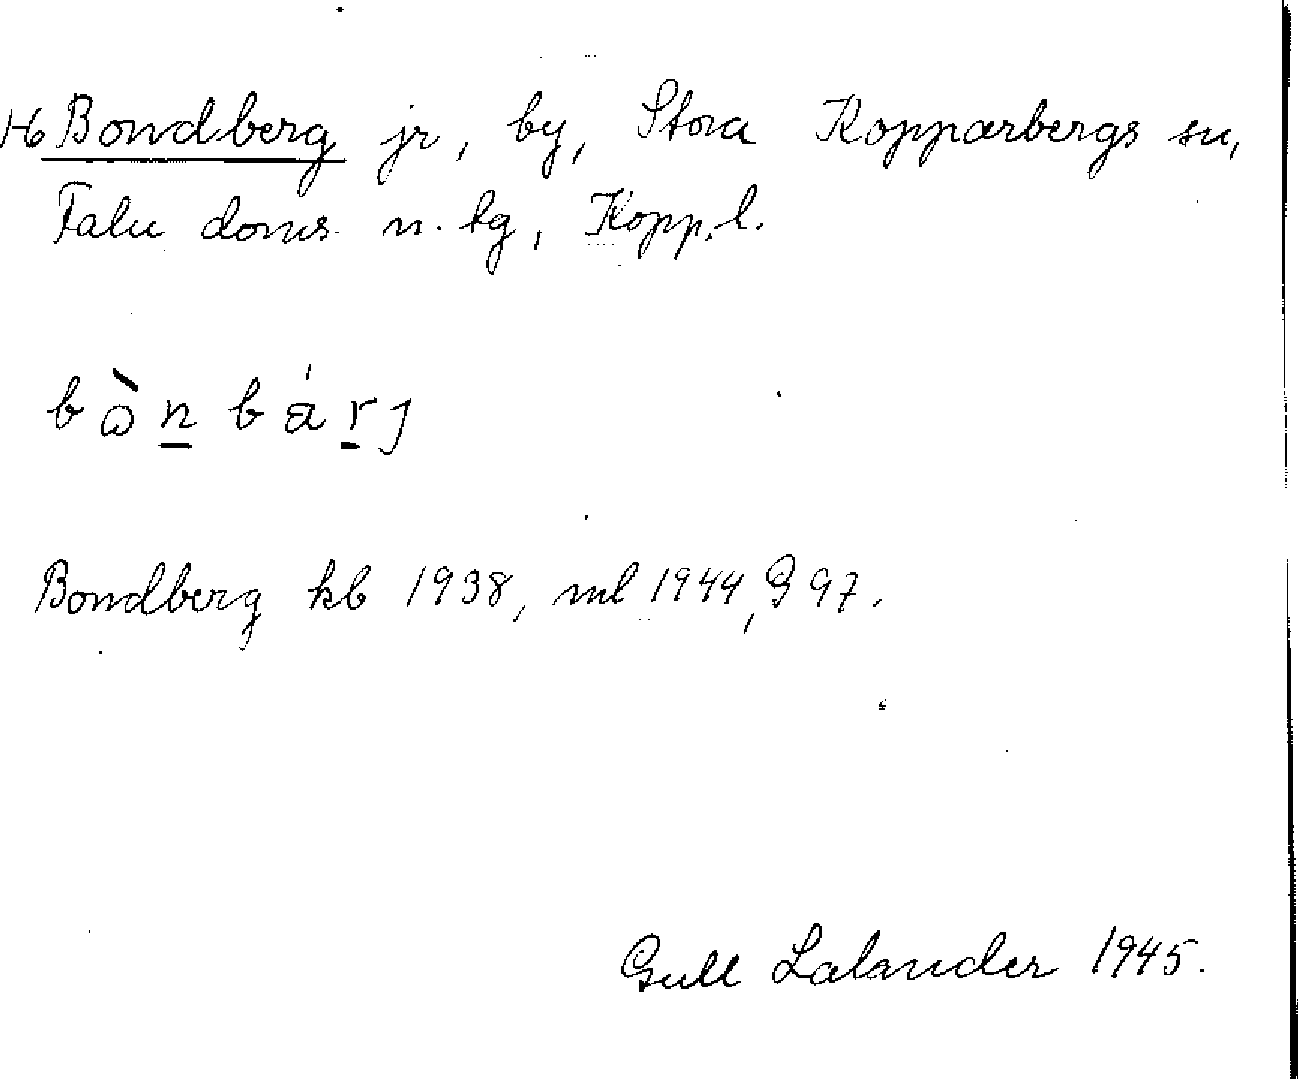 Hb Bondberg jr, by, Stora Kopparbergs sn,
Falu doms. n. tg, Kopp. l.
bὼn bárj
Bondberg kb 1938, ml 1944, G 97.
Gull Lalander 1945.